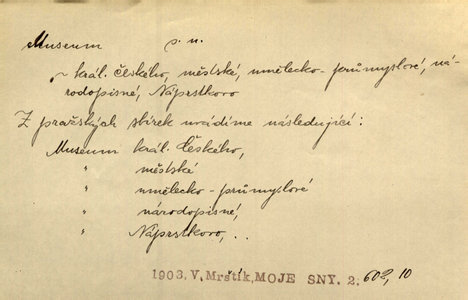 Museum s. n.
~ král. českého, městské, umělecko-průmyslové, ná-
rodopisné, Náprstkovo
Z pražských sbírek uvádíme následující:
Museum král. Českého,
" městské
" umělecko-průmyslové
" národopisné,
" Náprstkovo, ..
1903, V, Mrštík, MOJE SNY. 2. 602, 10